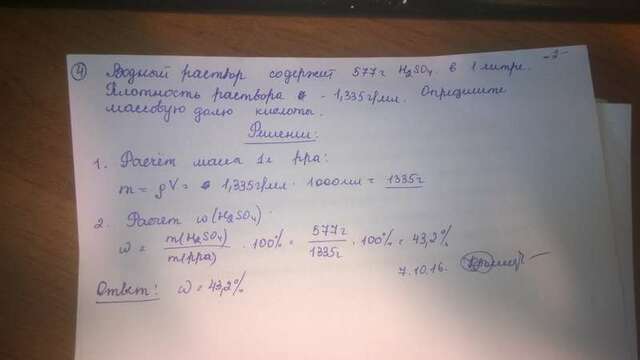 ④ Водный раствор содержит 577г H₂SO₄ в 1 литре. -2-
Плотность раствора - 1,335г/мл. Определите
массовую долю кислоты.
Решение:
1. Расчёт масса 1л р-ра:
m = ρV = 1,335г/мл · 1000мл = 1335г
2. Расчет ω(H₂SO₄)
ω = m(H₂SO₄)/m(р-ра) · 100% = 577г/1335г · 100% = 43,2%
7.10.16.
Ответ: ω = 43,2%